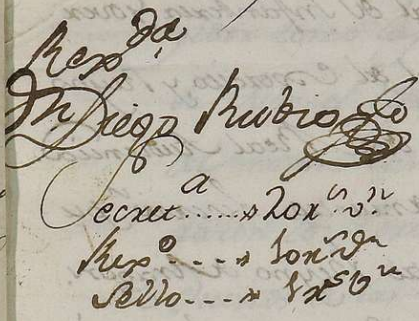 Rex.da
Dn Diego Rubio
Secret.a ..... 20 rs vn
Rexo .... 10 rs vn
Sello .... 1 rs vn